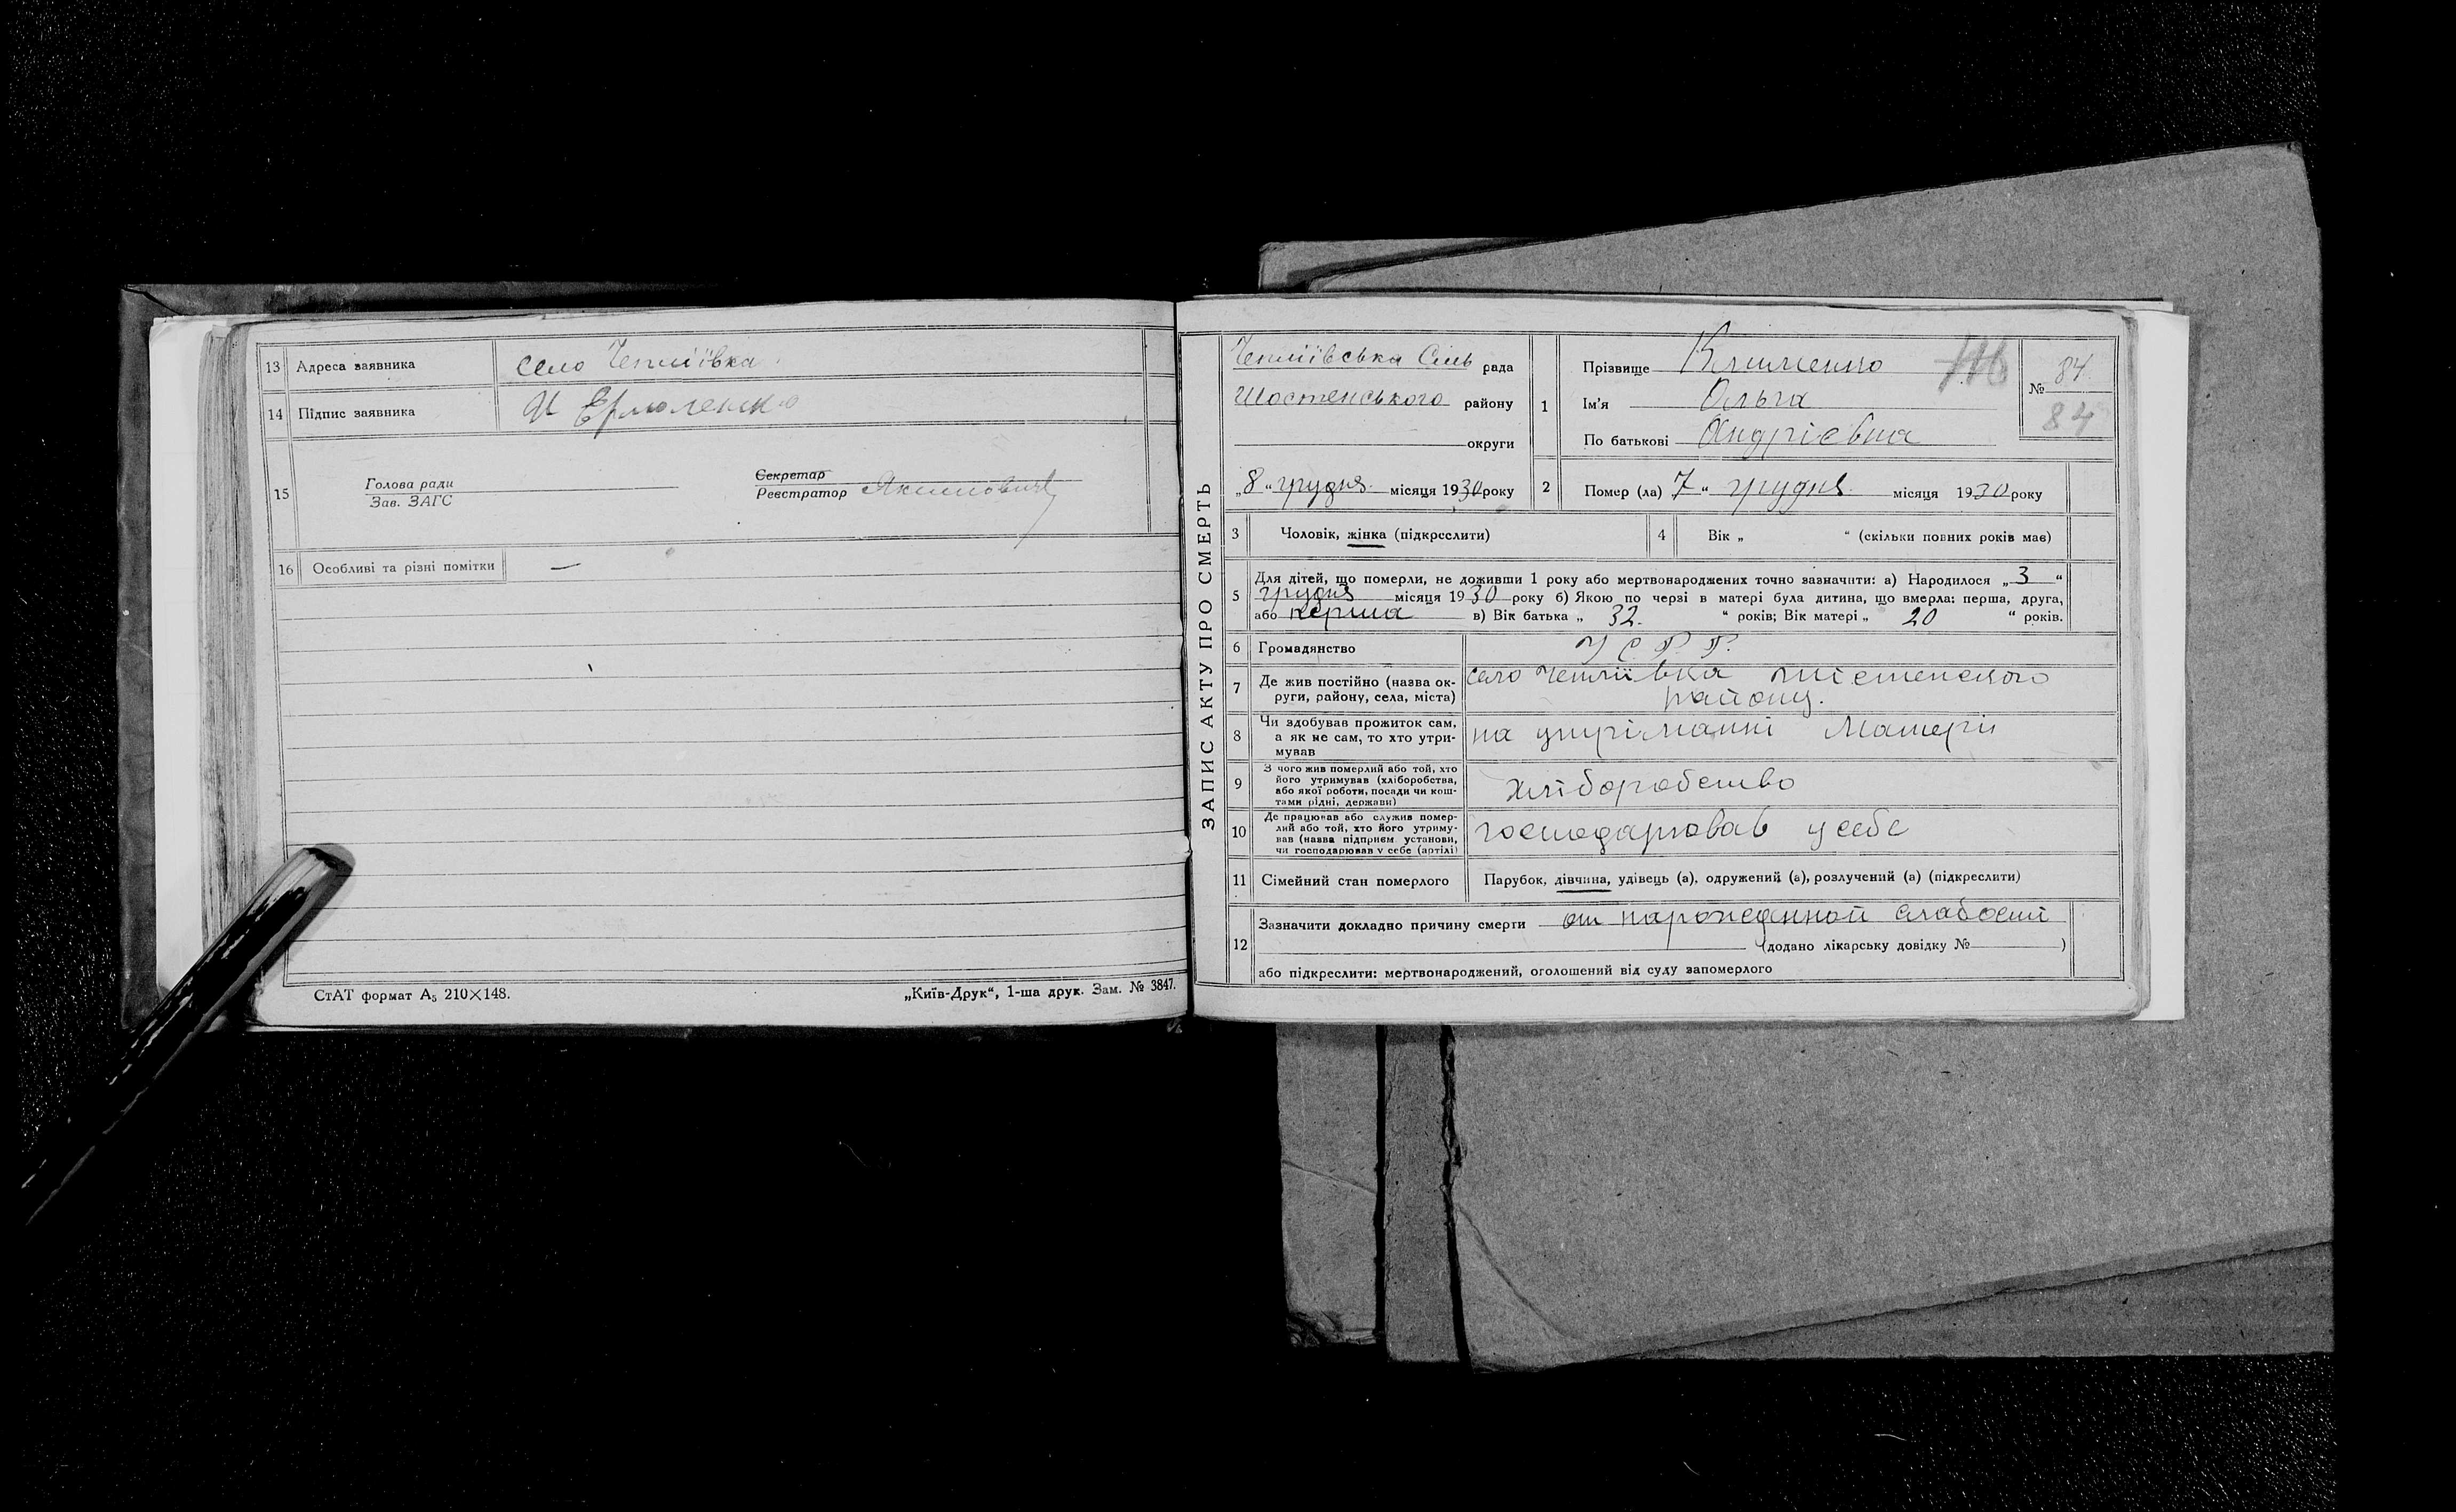 13 Адреса заявника село Чепліївка
14 Підпис заявника И Ермоленко
15 Голова ради
Зав. ЗАГС
Секретар
Реєстратор
16 Особливі та різні помітки —
СтАТ формат А5 210×148.
„Київ-Друк“, 1-ша друк. Зам. № 3847.
ЗАПИС АКТУ ПРО СМЕРТЬ
Чепліївська Сіль рада
Шостенського району
округи
„8“ грудня місяця 1930 року
1 Прізвище Клименко
Ім'я Ольга
По батькові Андріевна
№ 84.
84
2 Помер (ла) 7 “ грудня місяця 1930 року
3 Чоловік, жінка (підкреслити)
4 Вік „ “ (скільки повних років має)
5 Для дітей, що померли, не доживши 1 року або мертвонароджених точно зазначити: а) Народилося „ 3 “
грудня місяця 1930 року б) Якою по черзі в матері була дитина, що вмерла: перша, друга,
або перша в) Вік батька „ 32. “ років; Вік матері „ 20 “ років.
6 Громадянство У С Р Р.
7 Де жив постійно (назва округи, району, села, міста) село Чепліївка
району.
8 Чи здобував прожиток сам,
а як не сам, то хто утри-
мував
на утріманні Матері
9 З чого жив померлий або той, хто
його утримував (хліборобства,
або якої роботи, посади чи кош-
тами рідні, держави)
хліборобство
10 Де працював або служив помер-
лий або той, хто його утриму-
вав (назва підприєм. установи,
чи господарював у себе (артілі)
господарював у себе
11 Сімейний стан померлого Парубок, дівчина, удівець (а), одружений (а), розлучений (а) (підкреслити)
12 Зазначити докладно причину смерти от нарожденной слабости
(додано лікарську довідку № )
або підкреслити: мертвонароджений, оголошений від суду запомерлого